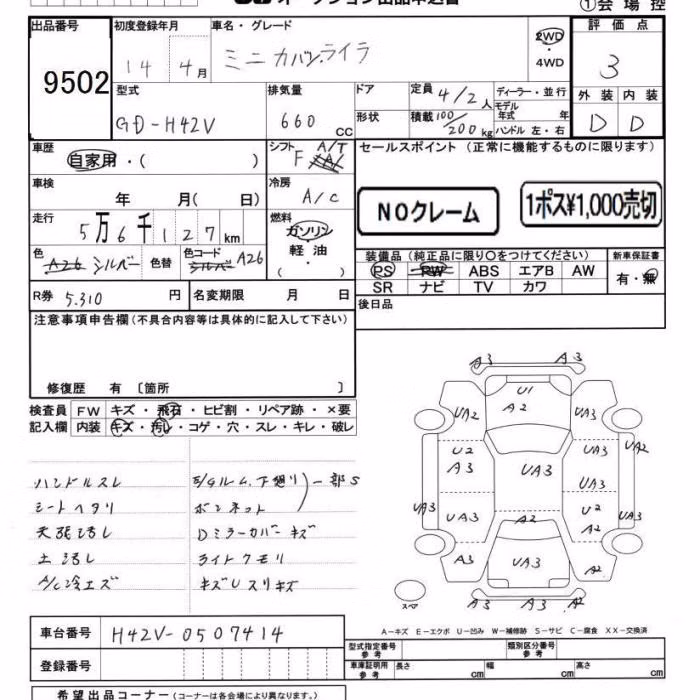 オークション出品申込書
①会場控
出品番号 初度登録年月 車名・グレード 評価点
9502 14 4月 ミニカバン.ライラ 2WD ・4WD 3
型式 排気量 ドア 定員 4/2人 ディーラー・並行 外装 内装
GD-H42V 660 CC 形状 積載 100/200kg モデル年式 年 ハンドル 左・右 D D
車歴 シフト A/T セールスポイント (正常に機能するものに限ります)
自家用・( ) F
車検 年 月( 日) 冷房 A/C NOクレーム 1ポス¥1,000売切
走行 5万6千127km 燃料 ガソリン 軽油 ( ・ )
色 A26 シルバー 色替 色コード シルバー A26 装備品 (純正品に限り〇をつけてください) 新車保証書
PS PW ABS エアB AW 有・無
SR ナビ TV カワ
R券 5.310 円 名変期限 月 日 後日品
注意事項申告欄(不具合内容等は具体的に記入して下さい)
修復歴 有 〔箇所 〕
検査員 FW キズ・飛石・ヒビ割・リペア跡・×要
記入欄 内装 キズ・汚レ・コゲ・穴・スレ・キレ・破レ
ハンドルスレ E/Gルム.下廻リ 一部S
シートヘタリ ボンネット
天張汚レ Dミラーカバーキズ
土汚レ ライトクモリ
A/C冷エズ キズUスリキズ
A3 A3
UA2 U1 A2 UA3
U2 A3 UA3 UA3 UA2
UA3 UA3 UA3 U2 A2 UA3
A2
A3 UA3 A2
スペア A3 A3 A2
A-キズ E-エクボ U-凹み W-補修跡 S-サビ C-腐食 XX-交換済
車台番号 H42V-0507414
型式指定番号 参考 類別区分番号 参考
登録番号
車庫証明用 参考 長さ cm 幅 cm 高さ cm
希望出品コーナー(コーナーは各会場により異なります。)